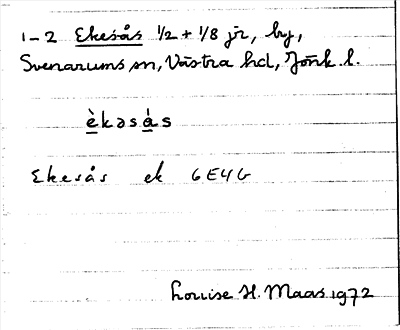 1-2 Ekesås 1/2 + 1/8 jr, by,
Svenarums sn, Västra hd, Jönk. l.
èkəsás
Ekesås ek 6E4G
Louise H. Maas 1972